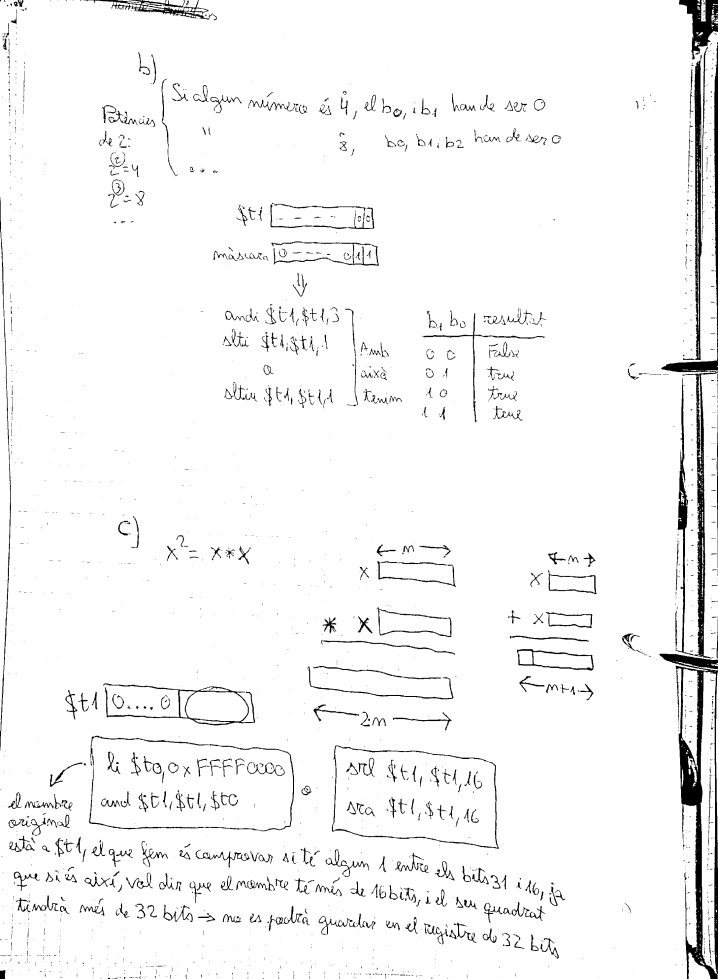 b)
Si algun número és 4̊, el b0, i b1 han de ser 0
Potències
de 2:
" 8̊, b0, b1 i b2 han de ser 0
2²=4
...
2³=8
...
$t1 - - - - 0 0
màscara 0 - - - - 0 1 1
⇓
andi $t1, $t1, 3
slti $t1, $t1, 1
o
sltiu $t1, $t1, 1
Amb
això
tenim
b1 b0 resultat
0 0 False
0 1 true
1 0 true
1 1 true
c)
x² = x*x
← n →
x
* x
← 2n →
← n →
x
+ x
← n+1 →
$t1 0....0
li $t0, 0xFFFF0000
and $t1, $t1, $t0
o
srl $t1, $t1, 16
sra $t1, $t1, 16
el nombre
original
està a $t1, el que fem és comprovar si té algun 1 entre els bits 31 i 16, ja
que si és així, vol dir que el nombre té més de 16 bits, i el seu quadrat
tindrà més de 32 bits → no es podrà guardar en el registre de 32 bits